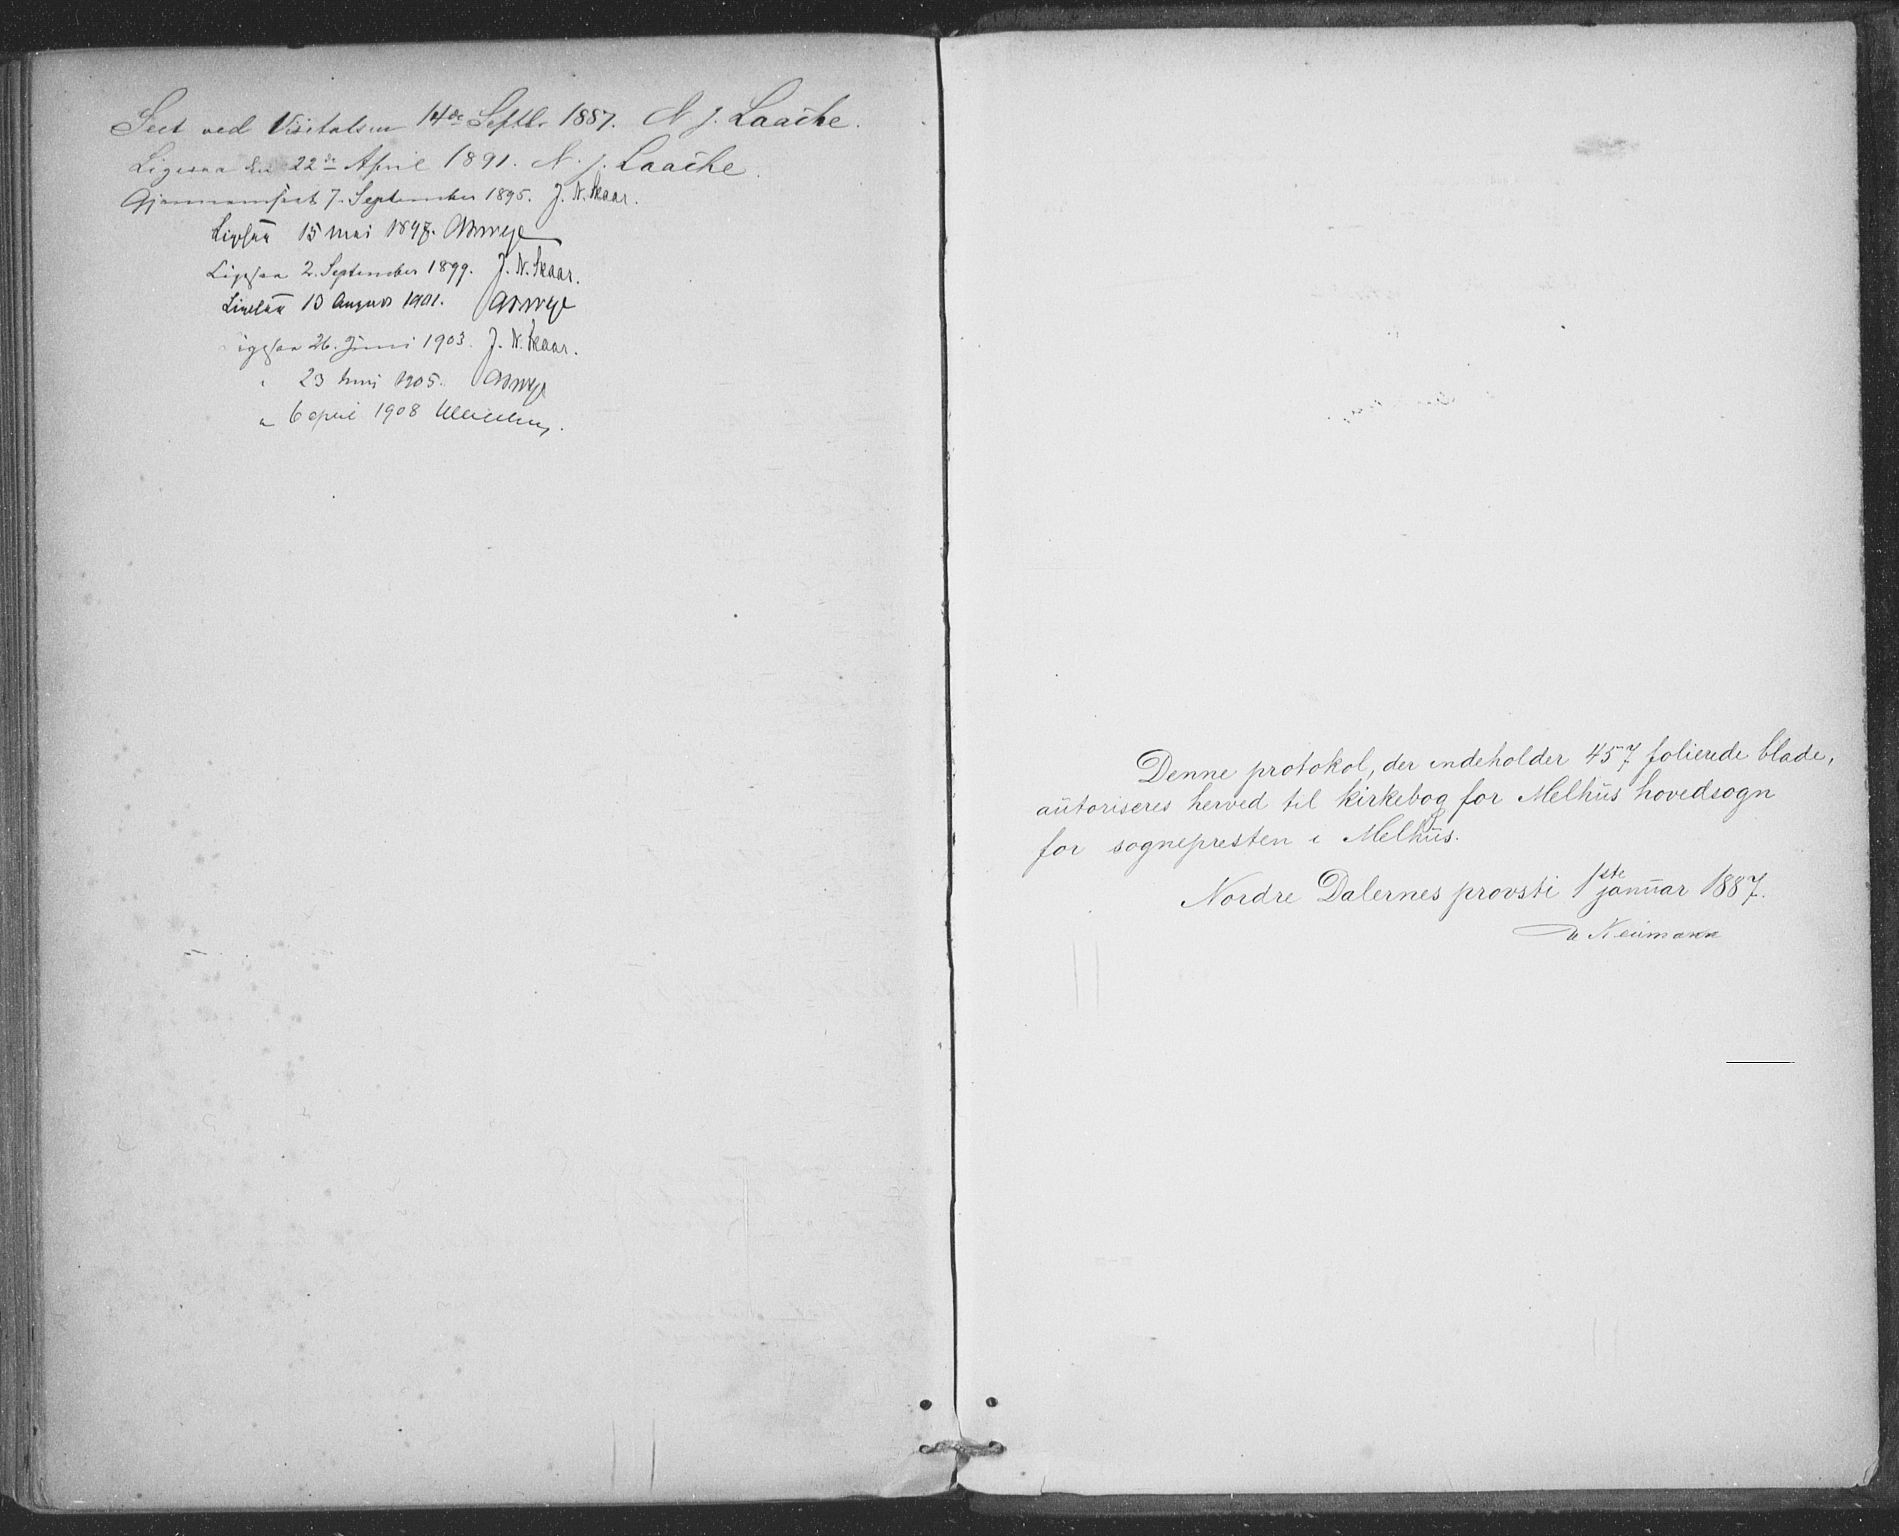 Seet ved Visitatsen 14de Septbr 1887. N J. Laache.
Ligesaa den 22de April 1891. N. J. Laache.
Gjennemseet 7. September 1895. J. N. Skaar.
Ligesaa 15 mai 1897.
Ligesaa 2. September 1899. J. N. Skaar.
Ligesaa 13 August 1901.
Ligesaa 26. Juni 1903. J. N. Skaar.
" 23 Juni 1905.
" 6 april 1908
Denne protokol, der indeholder 457 folierede blade,
autoriseres herved til kirkebog for Melhus hovedsogn
for sognepresten i Melhus.
Nordre Dalernes provsti 1ste januar 1887.
Neumann